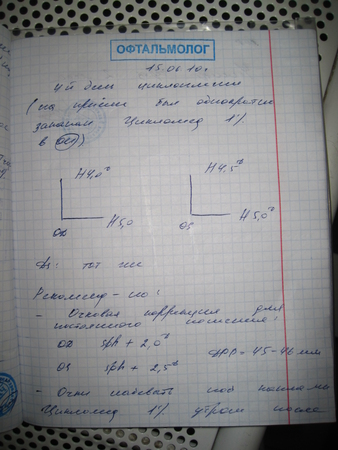 ОФТАЛЬМОЛОГ
15.06.10г.
4й день циклоплегии
(на приёме был однократно
закапан Цикломед 1%
в ou))
H 4,0 H 4,5
H 5,0 H 5,0
OD OS
Ds: тот же
Рекоменд-но:
- Очковая коррекция для
постоянного ношения:
OD sph + 2,0
DPP = 45-46 мм
OS sph + 2,5
- Очки надевать под
Цикломед 1% утром после